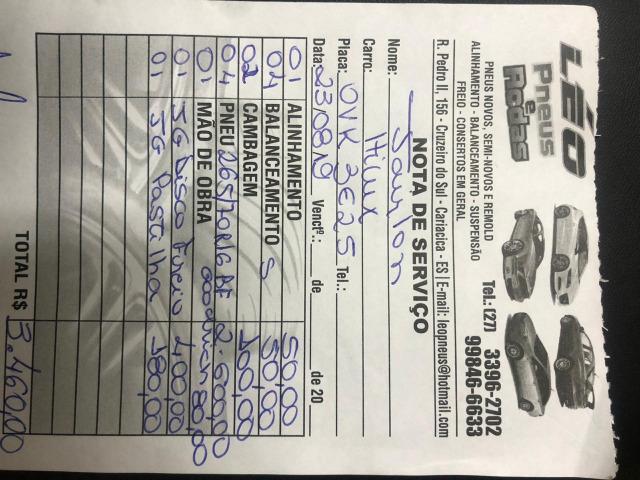 LÉO
Pneus
e
Rodas
PNEUS NOVOS, SEMI-NOVOS E REMOLD
ALINHAMENTO - BALANCEAMENTO - SUSPENSÃO
FREIO - CONSERTOS EM GERAL
Tel.: (27) 3396-2702
99846-6633
R. Pedro II, 156 - Cruzeiro do Sul - Cariacica - ES | E-mail: leopneus@hotmail.com
NOTA DE SERVIÇO
Nome:
Carro: Hilux
Placa: OVK 3E25 Tel.:
Data: 23/08/19 Venctº.: de de 20
01 ALINHAMENTO 50,00
04 BALANCEAMENTO S 50,00
02 CAMBAGEM 100,00
04 PNEU 265/70R16 BF 2.600,00
01 MÃO DE OBRA 80,00
01 JG Disco Freio 400,00
01 JG Pastilha 180,00
TOTAL R$ 3.460,00